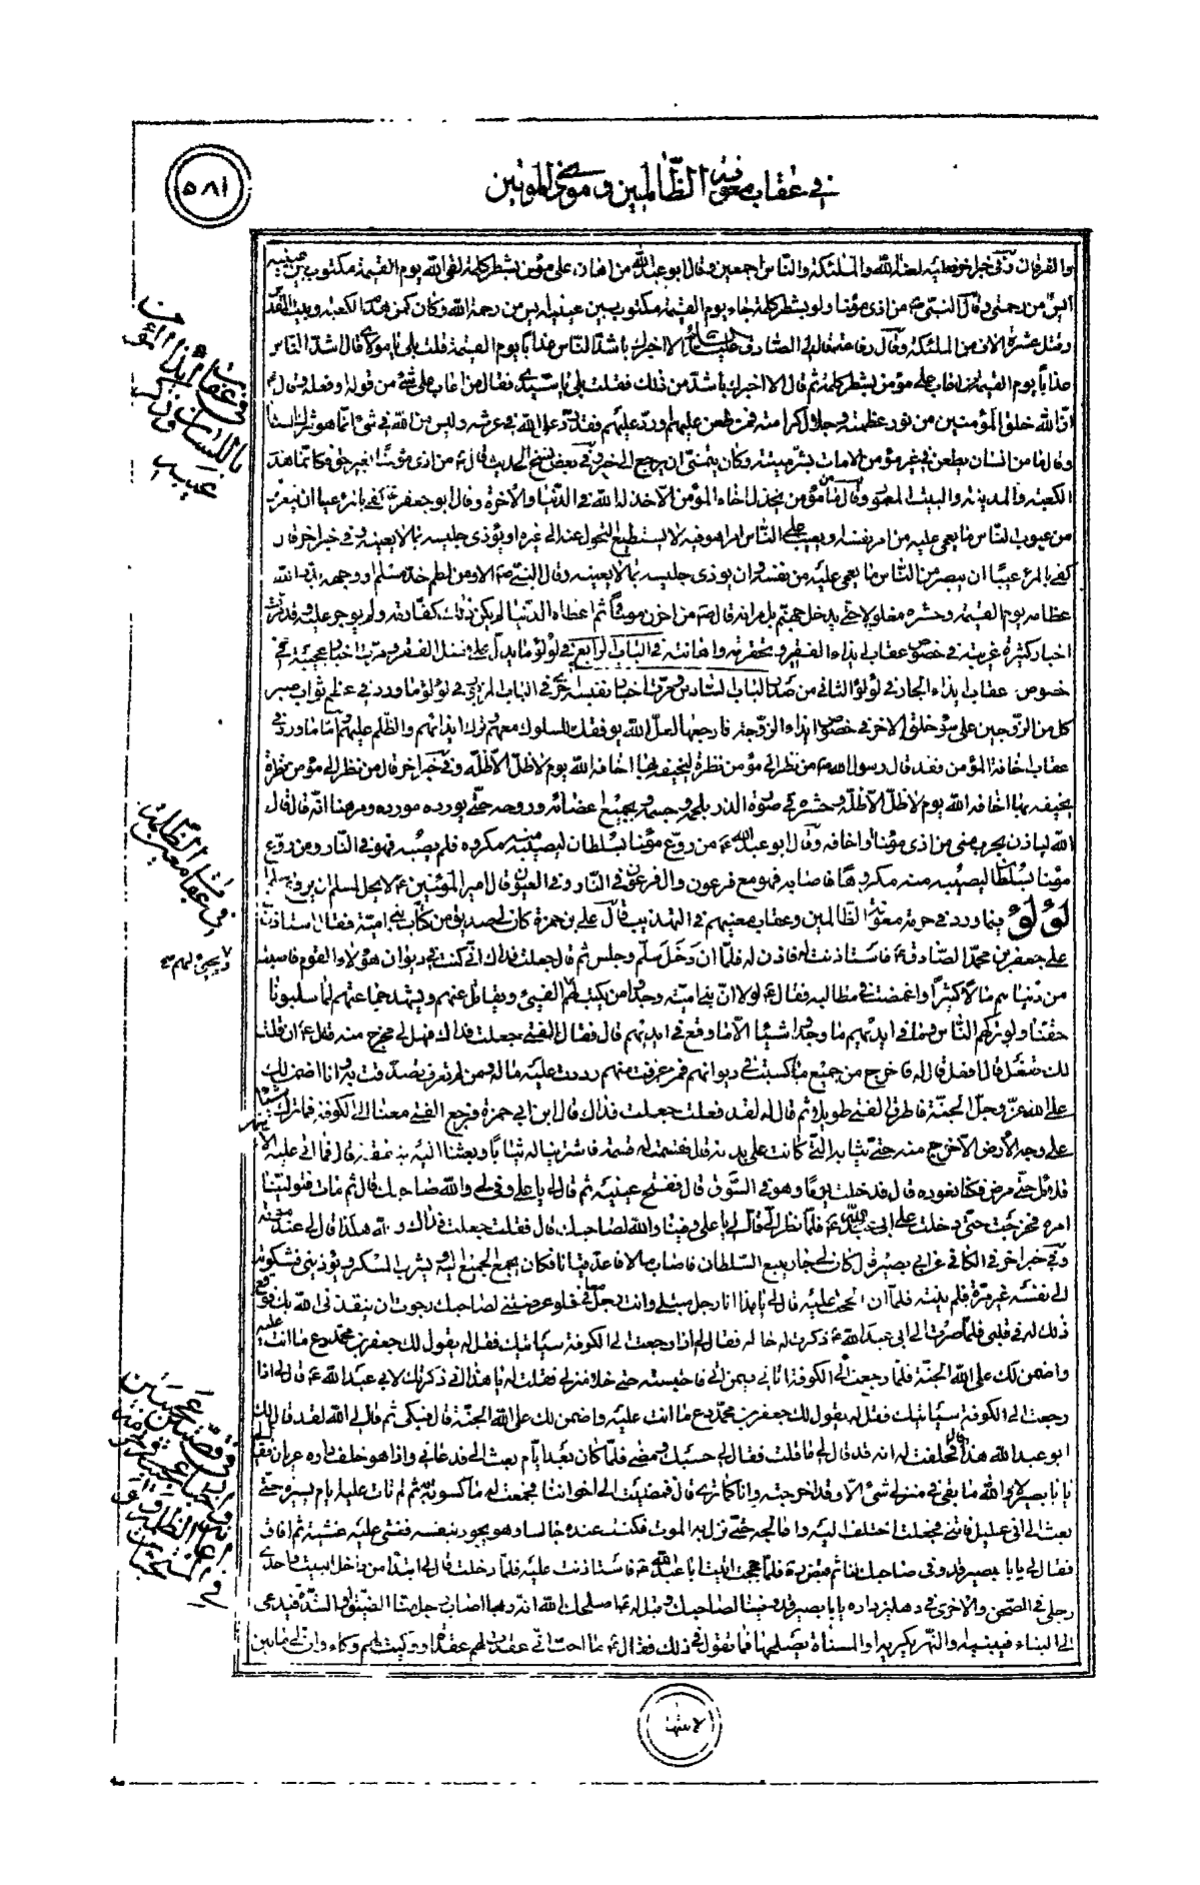 في عقاب معونة الظالمين و
٥٨١
والفرقان وفي خبر اخر فعليه لعنة الله والملئكة والناس اجمعين وقال ابو عبد الله من اعان على مؤمن بشطر كلمة لقى الله يوم القيمة مكتوب بين عينيه
ايس من رحمتى وقال النبي ص من اذى مؤمنا ولو بشطر كلمة جاء يوم القيمة مكتوب بين عينيه ايس من رحمة الله وكان كمن هدم الكعبة وبيت المقدس
وقتل عشرة الاف من الملئكة وقال رفاعة قال لي الصادق الا اخبرك باشد الناس عذابا يوم القيمة قلت بلى يا مولاى قال اشد الناس
عذابا يوم القيمة من اعان على مؤمن بشطر كلمة ثم قال الا اخبرك باشد من ذلك فقلت بلى يا سيدي فقال من اعاب على شئ من قوله او فعله وقال
ان الله خلق المؤمنين من نور عظمته وجلال كرامته فمن طعن عليهم ورد عليهم فقد رد على الله في عرشه وليس من الله في شئ انما هو شرك الشيطان
وقال ما من انسان يطعن في عين مؤمن الا مات بشر ميتة وكان يتمنى ان يرجع الى خير وفي بعض نسخ الحديث قال من اذى مؤمنا بغير حق فكانما هدم
الكعبة والبيت المعمور وقال ما مؤمن يخذل اخاه المؤمن الا خذله الله في الدنيا والاخرة وقال ابو جعفر كفى بالمرء عيبا ان يتعرف
من عيوب الناس ما يعمى عليه من امر نفسه او يعيب على الناس امرا هو فيه لا يستطيع التحول عنه الى غيره او يؤذى جليسه بما لا يعنيه وفي خبر اخر قال
كفى بالمرء عيبا ان يبصر من الناس ما يعمى عليه من نفسه وان يوذى جليسه بما لا يعنيه وقال النبي ص الا ومن لطم خد مسلم او وجهه بدد الله
عظامه يوم القيمة وحشره مغلولا حتى يدخل جهنم قال ص من احزن مؤمنا ثم اعطاه الدنيا لم يكن ذلك كفارته ولم يوجر عليه وقد مرت
اخبار كثيرة غريبة في خصوص عقاب ايذاء الفقير وتحقيره واهانته في الباب الرابع في لؤلؤ ما يدل على فضل الفقر ومرت اخبار عجيبة في
خصوص عقاب ايذاء الجار في لؤلؤ الثاني من صدر الباب السادس ومرت اخبار نفيسة اخرى في الباب في لؤلؤ ما ورد في عظم ثواب صبر
كل من الزوجين على سؤ خلق الاخر في خصوص ايذاء الزوجة فارجعها لعل الله يوفقك للسلوك معهم وترك ايذائهم والظلم عليهم واما ما ورد في
عقاب اخافة المؤمن فقد قال رسول الله ص من نظر الى مؤمن نظرة ليخيفه بها اخافه الله يوم لا ظل الا ظله وفي خبر اخر قال من نظر الى مؤمن نظرة
يخيفه بها اخافه الله يوم لا ظل الا ظله وحشره في صورة الذر بلحمه وجسمه وجميع اعضائه وروحه حتى يورده مورده ومر هنا انه قال قال
الله لياذن بحرب منى من اذى مؤمنا واخافه وقال ابو عبد الله ع من روع مؤمنا بسلطان ليصيبه منه مكروه فلم يصبه فهو في النار ومن روع
مؤمنا بسلطان ليصيبه منه مكروها فاصابه فهو مع فرعون وال فرعون في النار وفي العيون قال امير المؤمنين ع لا يحل لمسلم ان يروع مسلما
لؤلؤ فيما ورد في حرمة معونة الظالمين وعقاب معينهم في التهذيب قال على بن حمزة كان لى صديق من كتاب بنى امية فقال استاذن
على جعفر بن محمد الصادق ع فاستاذنت له فاذن له فلما ان دخل سلم وجلس ثم قال جعلت فداك انى كنت في ديوان هؤلاء القوم فاصبت
من دنياهم مالا كثيرا واغمضت في مطالبه فقال ع لولا ان بنى امية وجدوا من يكتب لهم ويجبى لهم الفئ ويقاتل عنهم ويشهد جماعتهم لما سلبونا
حقنا ولو تركهم الناس وما في ايديهم ما وجدوا شيئا الا ما وقع في ايديهم قال فقال الفتى جعلت فداك فهل لى مخرج منه قال ع ان قلت
لك تفعل قال افعل قال له فاخرج من جميع ما كسبت في ديوانهم فمن عرفت منهم رددت عليه ماله ومن لم تعرف تصدقت به وانا اضمن لك
على الله عز وجل الجنة فاطرق الفتى طويلا ثم قال له لقد فعلت جعلت فداك قال ابن ابي حمزة فرجع الفتى معنا الى الكوفة فما ترك شيئا
على وجه الارض الا خرج منه حتى ثيابه التي كانت على بدنه قال فقسمت له قسمة فاشترينا له ثيابا وبعثنا اليه بنفقة قال فما اتى عليه الا اشهر
قلائل حتى مرض فكنا نعوده قال فدخلت يوما وهو في السوق قال ففتح عينيه ثم قال لى يا على وفى لى والله صاحبك قال ثم مات فتولينا
امره فخرجت حتى دخلت على ابى عبد الله ع فلما نظر الى قال لى يا على وفينا والله لصاحبك قال فقلت جعلت فداك والله هكذا قال لى عند موته
وفي خبر اخر في الكافي عن ابى بصير قال كان لى جار يتبع السلطان فاصاب مالا فاعد قيانا فكان يجمع الجميع اليه ويشرب المسكر ويؤذينى فشكوته
الى نفسه غير مرة فلم ينته فلما ان الححت عليه قال لى يا هذا انا رجل مبتلى وانت رجل معافى فلو عرضتنى لصاحبك رجوت ان ينقذنى الله بك فوقع
ذلك له في قلبى فلما صرت الى ابى عبد الله ع ذكرت له حاله فقال لى اذا رجعت الى الكوفة سياتيك فقل له يقول لك جعفر بن محمد دع ما انت عليه
واضمن لك على الله الجنة فلما رجعت الى الكوفة اتانى فيمن اتى فاحتبسته حتى خلا منزلى فقلت له يا هذا انى ذكرتك لابى عبد الله ع قال لى اذا
رجعت الى الكوفة سياتيك فقل له يقول لك جعفر بن محمد دع ما انت عليه واضمن لك على الله الجنة قال فبكى ثم قال لى الله لقد قال لك
ابو عبد الله هذا قال فحلفت له انه قد قال لى ما قلت فقال لى حسبك ومضى فلما كان بعد ايام بعث الى فدعانى واذا هو خلف داره عريان فقال لى
يا ابا بصير لا والله ما بقى في منزلى شئ الا وقد اخرجته وانا كما ترى قال فمضيت الى اخواننا فجمعت له ما كسوته به ثم لم تات عليه ايام يسيرة حتى
بعث الى انى عليل فاتنى فجعلت اختلف اليه واعالجه حتى نزل به الموت فكنت عنده جالسا وهو يجود بنفسه فغشى عليه غشية ثم افاق
فقال لى يا ابا بصير قد وفى صاحبك لنا ثم قبض فلما حججت اتيت ابا عبد الله ع فاستاذنت عليه فلما دخلت قال لى ابتداء من داخل البيت واحدى
رجلى في الصحن والاخرى في دهليز داره يا ابا بصير قد وفينا لصاحبك وقيل له ع اصلحك الله انه ربما اصاب رجل منا الضيق والشدة فيدعى
الى البناء فيبنيه والنهر يكريه او المسناة يصلحها فما تقول في ذلك فقال ع ما احب انى عقدت لهم عقدة او وكيت لهم وكاء وان لى ما بين
لابتيها